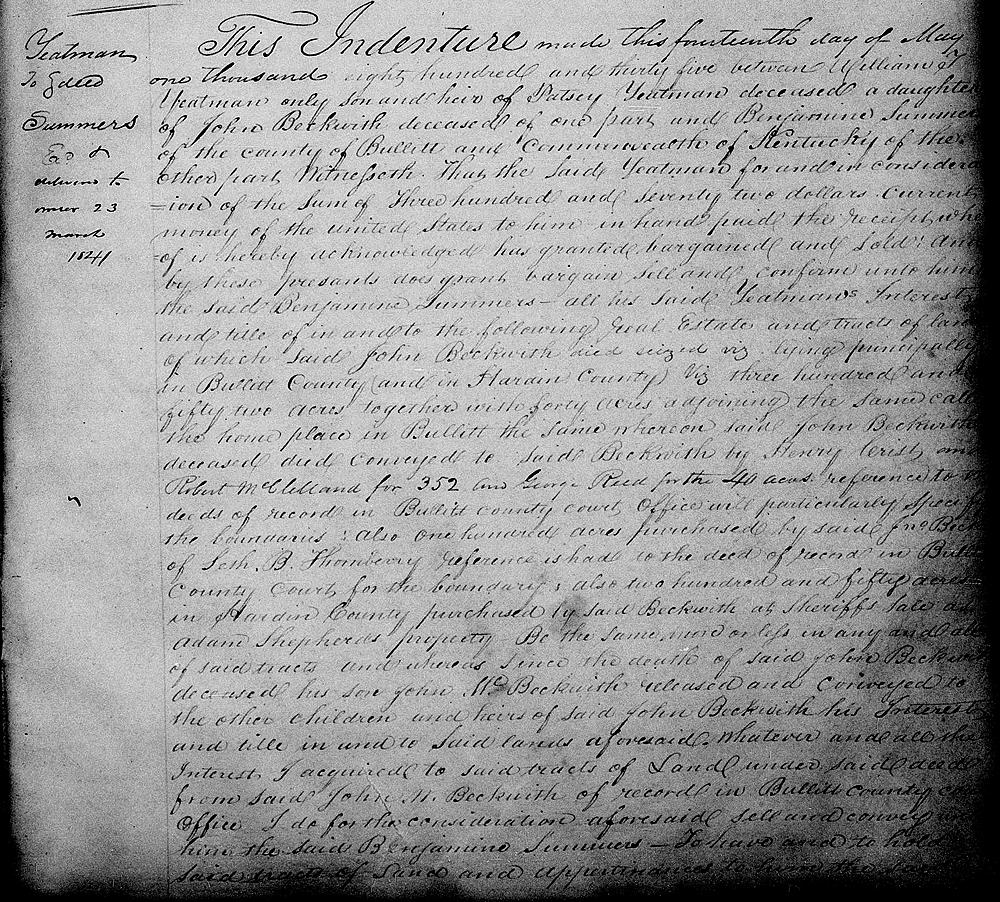 Yeatman
To Deed
Summers
Exd &
delivered to
owner 23
March
1841
This Indenture made this fourteenth day of May
one thousand eight hundred and thirty five between William T
Yeatman only son and heir of Patsey Yeatman deceased a daughter
of John Beckwith deceased of one part and Benjamine Summers
of the county of Bullitt and Commonwealth of Kentucky of the
other part Witnesseth. That the said Yeatman for and in considera
=ion of the sum of Three hundred and seventy two dollars current
money of the united States to him in hand paid the receipt whe
=of is hereby acknowledged has granted bargained and sold: and
by these presants does grant bargain sell and confirm unto him
the said Benjamine Summers — all his said Yeatmans Interest
and title of in and to the following real Estate and tracts of land
of which said John Beckwith died seized viz. lying principally
in Bullitt County (and in Hardin County) viz three hundred and
fifty two acres together with forty acres adjoining the same call
the home place in Bullitt the same whereon said John Beckwith
deceased died conveyed to said Beckwith by Henry Crist and
Robert McClelland for 352 and George Reed for the 40 acres reference to the
deeds of record in Bullitt county court Office will particularly specify
the boundaries: also one hundred acres purchased by said Jno Beck
of Seth. B. Thornberry reference is had to the deed of record in Bullitt
County Court for the boundary; also two hundred and fifty acres
in Hardin County purchased by said Beckwith at Sheriffs sale as
Adam Shepherds property. Be the same more or less in any and all
of said tracts and whereas since the death of said John Beckwith
deceased his son John W. Beckwith released and conveyed to
the other children and heirs of said John Beckwith his Interest
and title in and to said lands aforesaid. Whatever and all the
Interest I acquired to said tracts of Land under said deed
from said John W. Beckwith of record in Bullitt County cou
Office I do for the consideration aforesaid sell and convey un
him the said Benjamine Summers — To have and to hold
said tracts of Land and appertinances to him the said